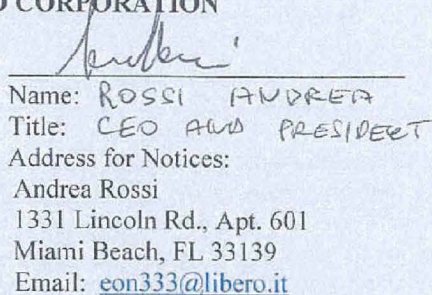 CORPORATION
Name: ROSSI ANDREA
Title: CEO AND PRESIDENT
Address for Notices:
Andrea Rossi
1331 Lincoln Rd., Apt. 601
Miami Beach, FL 33139
Email: eon333@libero.it